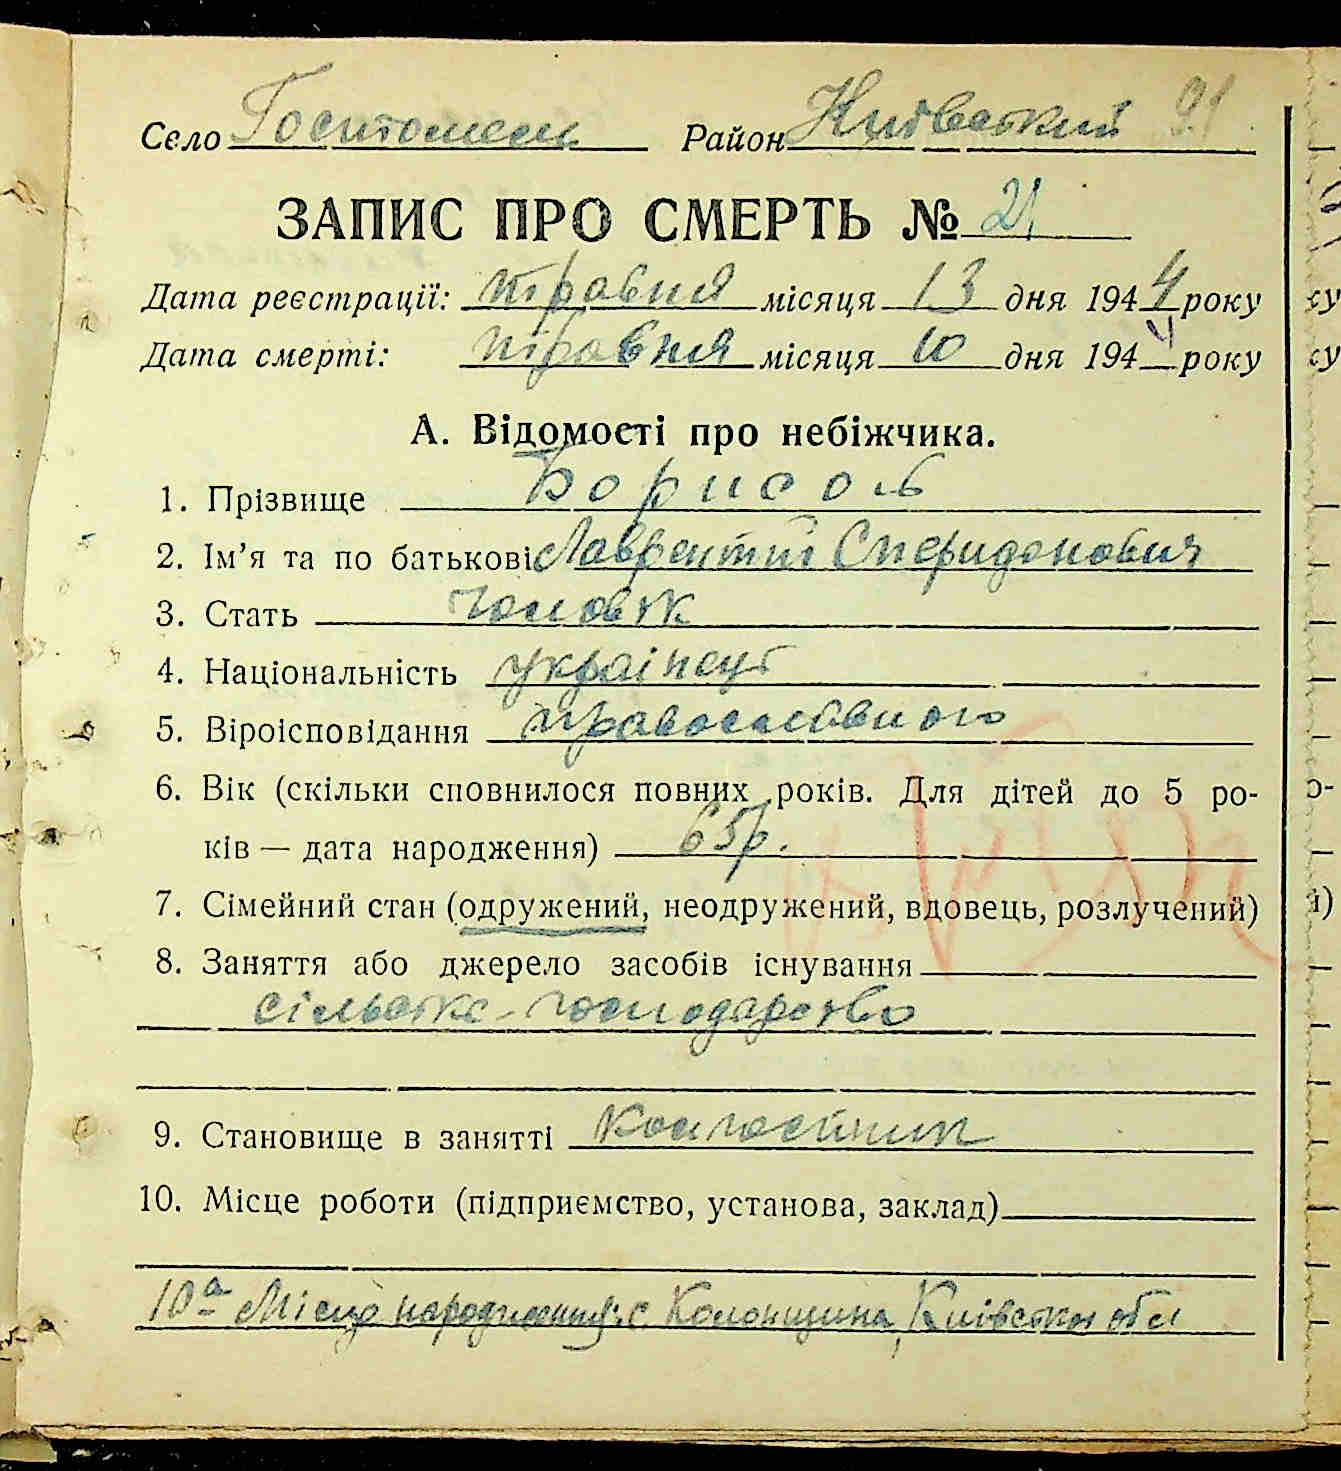 Село Гостомель Район Київський 91
ЗАПИС ПРО СМЕРТЬ № 21
Дата реєстрації: травня місяця 13 дня 1944 року
Дата смерті: травня місяця 10 дня 1944 року
А. Відомості про небіжчика.
1. Прізвище Борисов
2. Ім’я та по батькові Лаврентій Сперидонович
3. Стать чоловік
4. Національність українець
5. Віроісповідання православного
6. Вік (скільки сповнилося повних років. Для дітей до 5 ро-
ків — дата народження) 65 р.
7. Сімейний стан (одружений, неодружений, вдовець, розлучений)
8. Заняття або джерело засобів існування
сільське-господарство
9. Становище в занятті колгоспник
10. Місце роботи (підприємство, установа, заклад)
10а Місце народження: с. Колонщина, Київської обл